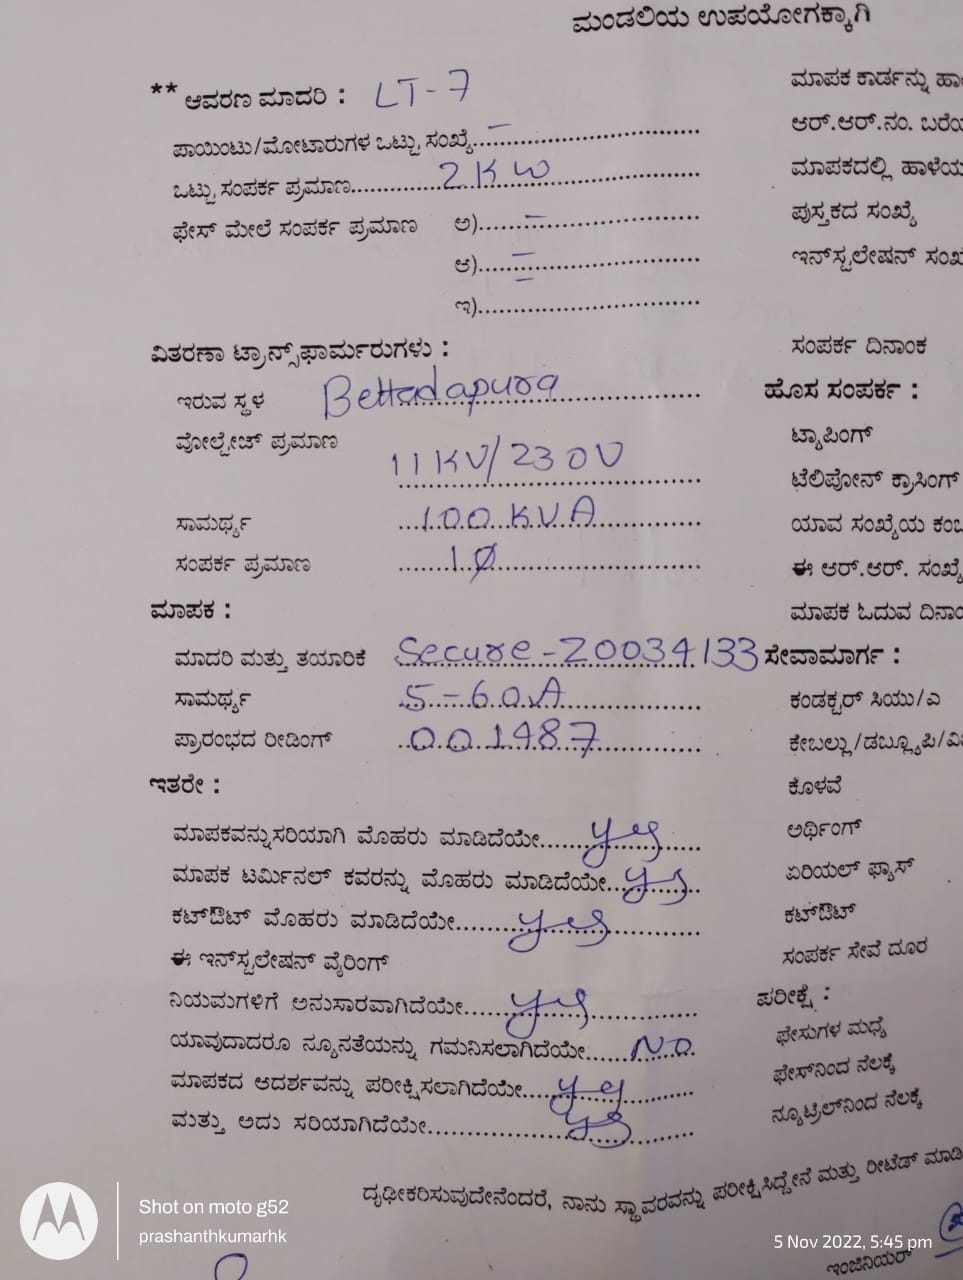 ಮಂಡಲಿಯ ಉಪಯೋಗಕ್ಕಾಗಿ
** ಆವರಣ ಮಾದರಿ : LT-7
ಪಾಯಿಂಟು/ಮೋಟಾರುಗಳ ಒಟ್ಟು ಸಂಖ್ಯೆ.... –
ಒಟ್ಟು ಸಂಪರ್ಕ ಪ್ರಮಾಣ.... 2 KW
ಫೇಸ್ ಮೇಲೆ ಸಂಪರ್ಕ ಪ್ರಮಾಣ ಅ).... –
ಆ).... –
ಇ).... –
ವಿತರಣಾ ಟ್ರಾನ್ಸ್‌ಫಾರ್ಮರುಗಳು :
ಇರುವ ಸ್ಥಳ Bettadapura
ವೋಲ್ಟೇಜ್ ಪ್ರಮಾಣ 11KV/230V
ಸಾಮರ್ಥ್ಯ 100 KVA
ಸಂಪರ್ಕ ಪ್ರಮಾಣ 1Ø
ಮಾಪಕ :
ಮಾದರಿ ಮತ್ತು ತಯಾರಿಕೆ Secure-20034133
ಸಾಮರ್ಥ್ಯ 5-60A
ಪ್ರಾರಂಭದ ರೀಡಿಂಗ್ 001487
ಇತರೇ :
ಮಾಪಕವನ್ನು ಸರಿಯಾಗಿ ಮೊಹರು ಮಾಡಿದೆಯೇ.... yes
ಮಾಪಕ ಟರ್ಮಿನಲ್ ಕವರನ್ನು ಮೊಹರು ಮಾಡಿದೆಯೇ.... yes
ಕಟ್‌ಔಟ್ ಮೊಹರು ಮಾಡಿದೆಯೇ.... yes
ಈ ಇನ್‌ಸ್ಟಲೇಷನ್ ವೈರಿಂಗ್
ನಿಯಮಗಳಿಗೆ ಅನುಸಾರವಾಗಿದೆಯೇ.... yes
ಯಾವುದಾದರೂ ನ್ಯೂನತೆಯನ್ನು ಗಮನಿಸಲಾಗಿದೆಯೇ.... NO
ಮಾಪಕದ ಆದರ್ಶವನ್ನು ಪರೀಕ್ಷಿಸಲಾಗಿದೆಯೇ.... yes
ಮತ್ತು ಅದು ಸರಿಯಾಗಿದೆಯೇ.... yes
ಮಾಪಕ ಕಾರ್ಡನ್ನು
ಆರ್.ಆರ್.ನಂ.
ಮಾಪಕದಲ್ಲಿ
ಪುಸ್ತಕದ ಸಂಖ್ಯೆ
ಇನ್‌ಸ್ಟಲೇಷನ್
ಸಂಪರ್ಕ ದಿನಾಂಕ
ಹೊಸ ಸಂಪರ್ಕ :
ಟ್ಯಾಪಿಂಗ್
ಟೆಲಿಫೋನ್ ಕ್ರಾಸಿಂಗ್
ಯಾವ ಸಂಖ್ಯೆಯ
ಈ ಆರ್.ಆರ್. ಸಂಖ್ಯೆ
ಮಾಪಕ ಓದುವ
ಸೇವಾಮಾರ್ಗ :
ಕಂಡಕ್ಟರ್ ಸಿಯು/ಎ
ಕೇಬಲ್ಲು/ಡಬ್ಲ್ಯೂಪಿ/
ಕೊಳವೆ
ಅರ್ಥಿಂಗ್
ಏರಿಯಲ್ ಫ್ಯಾಸ್
ಕಟ್‌ಔಟ್
ಸಂಪರ್ಕ ಸೇವೆ ದೂರ
ಪರೀಕ್ಷೆ :
ಫೇಸುಗಳ ಮಧ್ಯೆ
ಫೇಸ್‌ನಿಂದ ನೆಲಕ್ಕೆ
ನ್ಯೂಟ್ರೆಲ್‌ನಿಂದ ನೆಲಕ್ಕೆ
ದೃಢೀಕರಿಸುವುದೇನೆಂದರೆ, ನಾನು ಸ್ಥಾವರವನ್ನು ಪರೀಕ್ಷಿಸಿದ್ದೇನೆ ಮತ್ತು ರೀಟೆಡ್
ಇಂಜಿನಿಯರ್
Shot on moto g52
prashanthkumarhk
5 Nov 2022, 5:45 pm